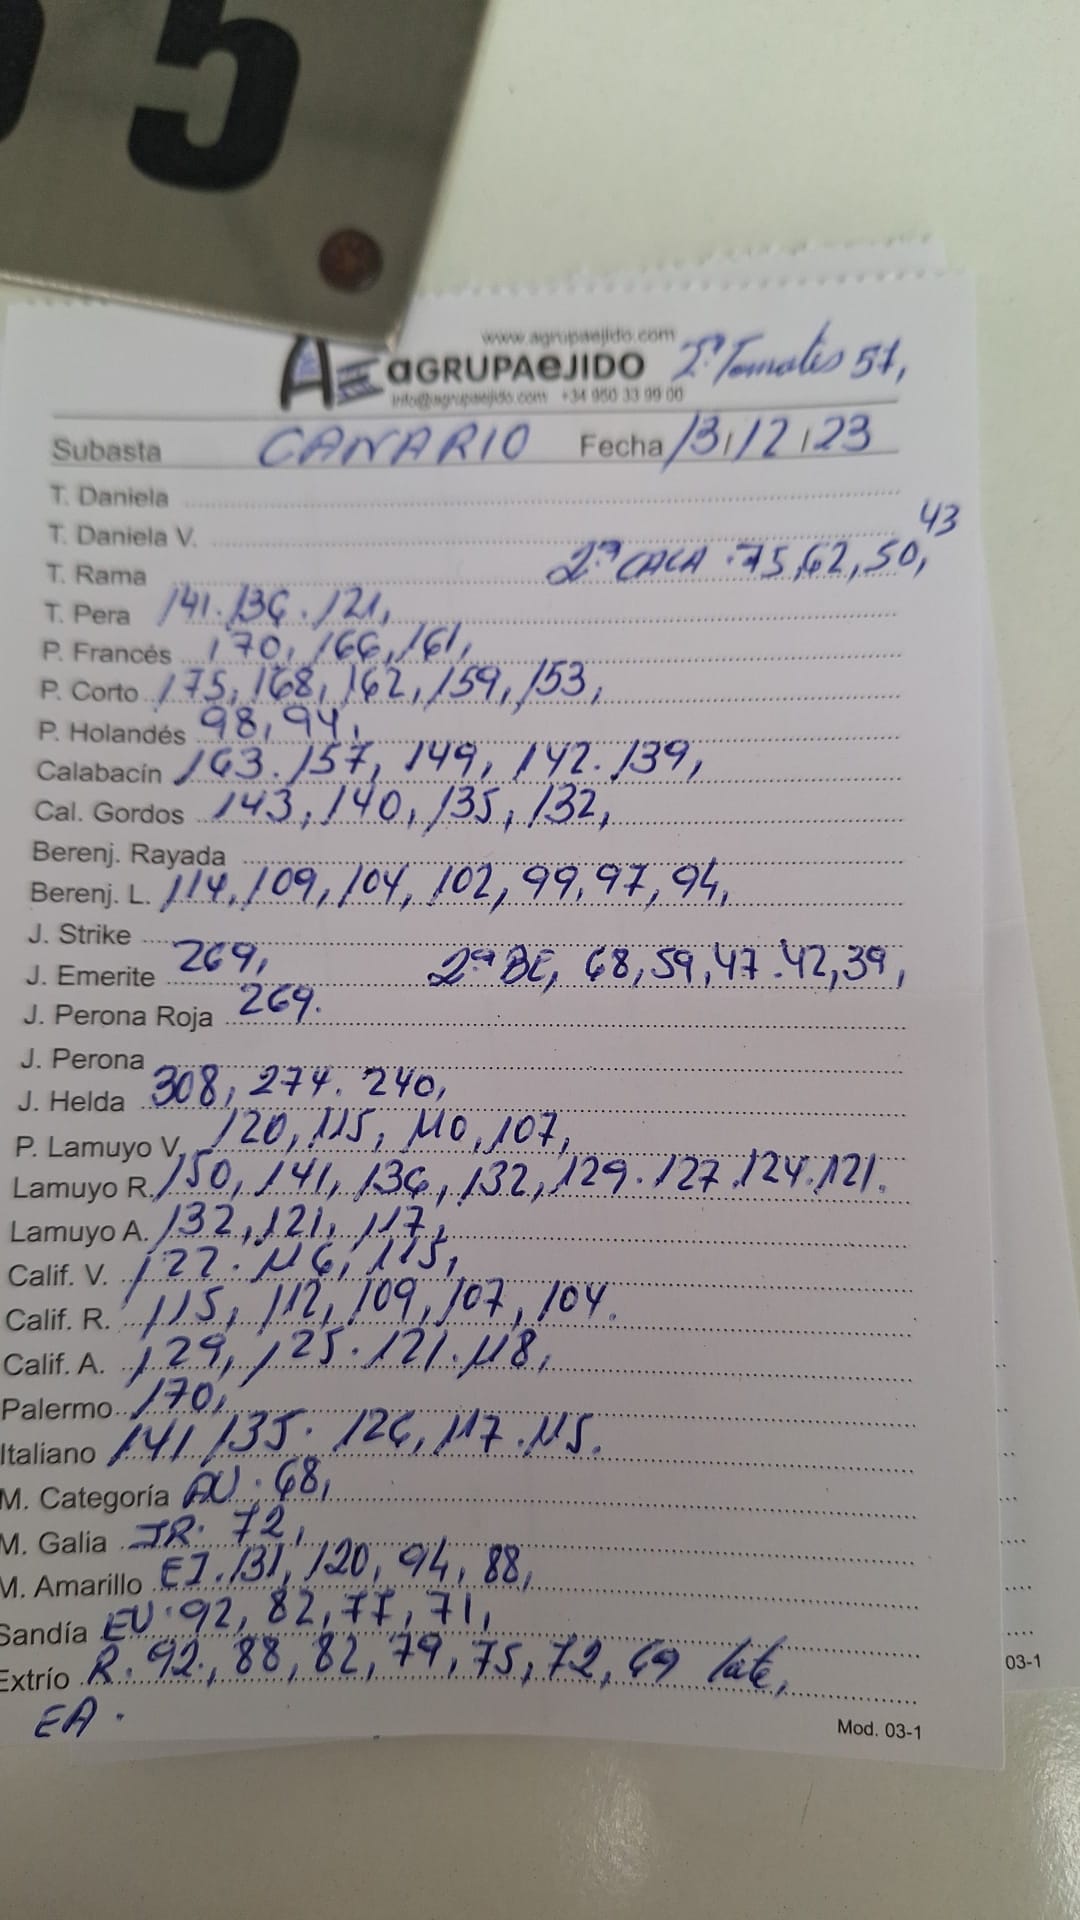 5
www.agrupaejido.com
AGRUPAEJIDO 2ª Tomates 57,
info@agrupaejido.com +34 950 33 99 00
Subasta CANARIO Fecha 13/12/23
T. Daniela
T. Daniela V. 43
T. Rama 2ª CALA .75,62,50,
T. Pera 141.136.121,
P. Francés 170, 166, 161,
P. Corto 175, 168, 162, 159, 153,
P. Holandés 98, 94,
Calabacín 163. 157, 149, 142. 139,
Cal. Gordos 143, 140, 135, 132,
Berenj. Rayada
Berenj. L. 114, 109, 104, 102, 99, 97, 94,
J. Strike
J. Emerite 269, 2ª BE, 68, 59, 47. 42, 39,
J. Perona Roja 269.
J. Perona
J. Helda 308, 274. 240,
P. Lamuyo V. 120, 115, 110, 107,
Lamuyo R. 150, 141, 136, 132, 129. 127 124. 121.
Lamuyo A. 132, 121, 117,
Calif. V. 122. 116, 115,
Calif. R. 115, 112, 109, 107, 104.
Calif. A. 129, 125. 121. 118,
Palermo 170,
Italiano 141 135. 126, 117. 115.
M. Categoría AV. 68,
M. Galia IR. 72,
M. Amarillo EI. 131, 120, 94, 88,
Sandía EV. 92, 82, 77, 71,
Extrío R. 92., 88, 82, 79, 75, 72, 69 late,
EA.
Mod. 03-1
03-1